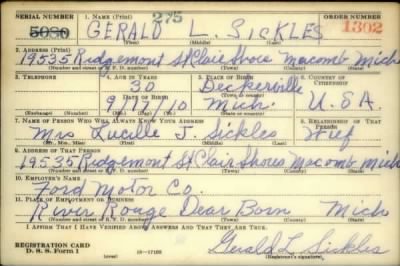 SERIAL NUMBER 1. NAME (Print) 275 ORDER NUMBER
5080 GERALD L. SICKLES 1302
(First) (Middle) (Last)
2. ADDRESS (Print)
19535 Ridgemont St Clair Shores Macomb Mich
(Number and street or R. F. D. number) (Town) (County) (State)
3. TELEPHONE 4. AGE IN YEARS 5. PLACE OF BIRTH 6. COUNTRY OF CITIZENSHIP
30 Deckerville
DATE OF BIRTH (Town or county)
9/17/10 Mich. U.S.A.
(Exchange) (Number) (Mo.) (Day) (Yr.) (State or country)
7. NAME OF PERSON WHO WILL ALWAYS KNOW YOUR ADDRESS 8. RELATIONSHIP OF THAT PERSON
Mrs Lucille J. Sickles Wief
(Mr., Mrs., Miss) (First) (Middle) (Last)
9. ADDRESS OF THAT PERSON
19535 Ridgemont St Clair Shores Macomb Mich
(Number and street or R. F. D. number) (Town) (County) (State)
10. EMPLOYER'S NAME
Ford Motor Co.
11. PLACE OF EMPLOYMENT OR BUSINESS
River Rouge Dear Born Mich
(Number and street or R. F. D. number) (Town) (County) (State)
I AFFIRM THAT I HAVE VERIFIED ABOVE ANSWERS AND THAT THEY ARE TRUE.
REGISTRATION CARD
D. S. S. Form 1 (over) 16—17105 Gerald L Sickles
(Registrant's signature)